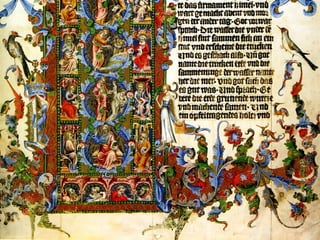 te das firmament himel·vnd
wart gemacht abent vnd mor
gen der ander tag·Got vurwar
sprach·Die wasser die vnder
himel sint sammen sich an ein
stat vnd erscheine die trucken
Vnd es geschach also·vnd got
nante die trucken erde vnd die
sammenunge der wasser nante
her die mer·vnd got sach das
es gut was·Vnd sprach·Ge
bere die erde grunende wurcz
vnd machende samen·Vnd
ein opfeltragendes holcz vnd